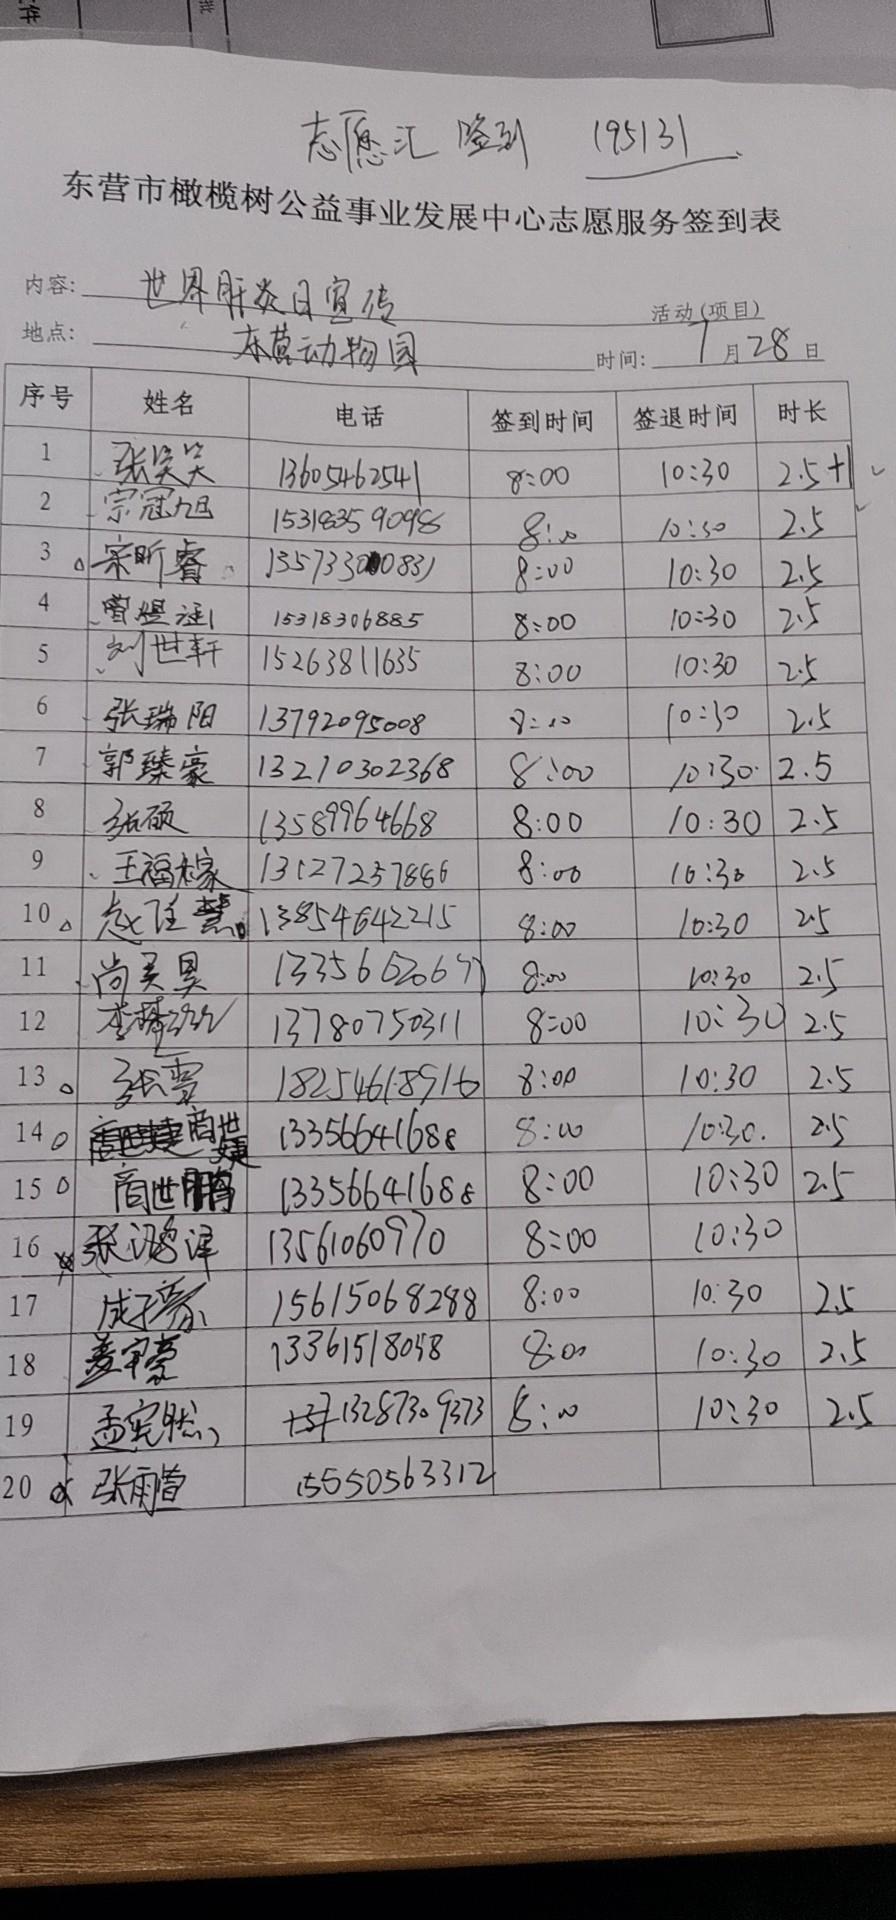 志愿汇 签到 195131
东营市橄榄树公益事业发展中心志愿服务签到表
内容: 世界肝炎日宣传 活动(项目)
地点: 东营动物园 时间: 7月28日
序号 姓名 电话 签到时间 签退时间 时长
1 张笑笑 13605462541 8:00 10:30 2.5+1
2 宗冠旭 15318359098 8:00 10:30 2.5
3 宗昕睿 13573300831 8:00 10:30 2.5
4 曾煜涵 15318306885 8:00 10:30 2.5
5 刘世轩 15263811635 8:00 10:30 2.5
6 张瑞阳 13792095008 8:00 10:30 2.5
7 郭臻豪 13210302368 8:00 10:30 2.5
8 张硕 13589964668 8:00 10:30 2.5
9 王福稼 13127257886 8:00 10:30 2.5
10 赵 慧 13854642215 8:00 10:30 2.5
11 尚昊 8:00 10:30 2.5
12 李梦 13780750311 8:00 10:30 2.5
13 张雪 18254618916 8:00 10:30 2.5
14 商世婕 13356641688 8:00 10:30. 2.5
15 商世鹏 13356641688 8:00 10:30 2.5
16 张 泽 13561060970 8:00 10:30
17 成子 15615068288 8:00 10:30 2.5
18 姜宇豪 13361518048 8:00 10:30 2.5
19 孟宪然 13287309373 8:00 10:30 2.5
20 张雨萱 15550563312